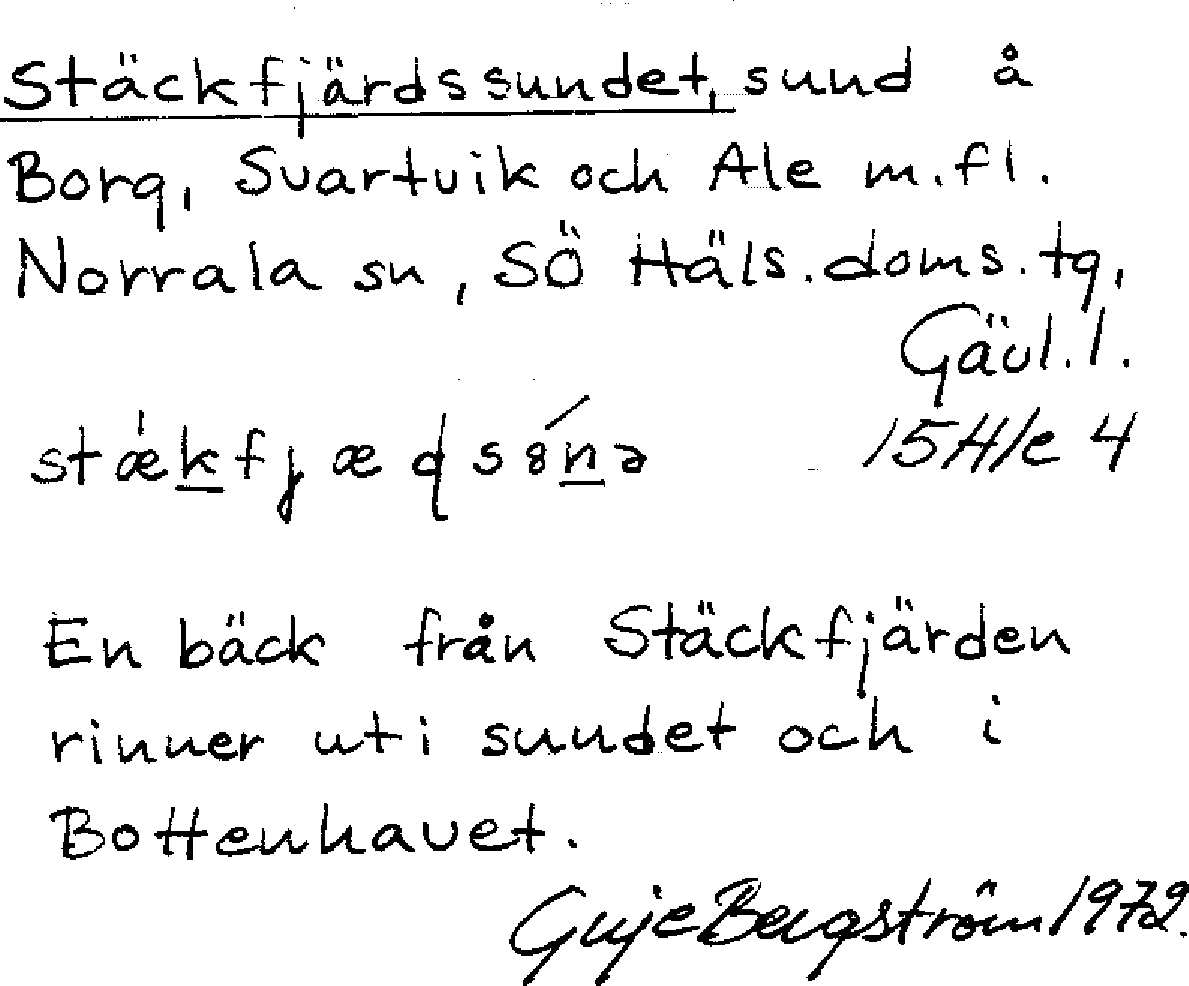 Stäckfjärdssundet, sund å
Borg, Svartvik och Ale m.fl.
Norrala sn, SÖ Häls.doms.tg,
Gävl.l.
stǽkfjæɖsȣ́nə 15H/e 4
En bäck från Stäckfjärden
rinner uti sundet och i
Bottenhavet.
Guje Bergström 1972.